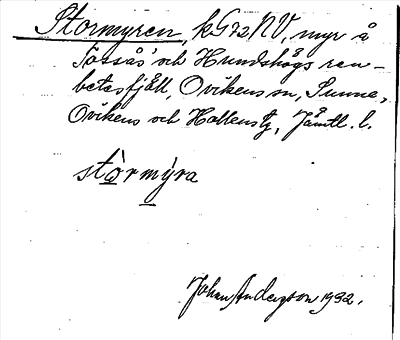 Stormyren, kG72NV, myr å
Tossås och Hundshögs ren-
betesfjäll, Ovikens sn, Sunne,
Ovikens och Hallens tg, Jämtl. l.
stòrmýra
Johan Anderson 1932.